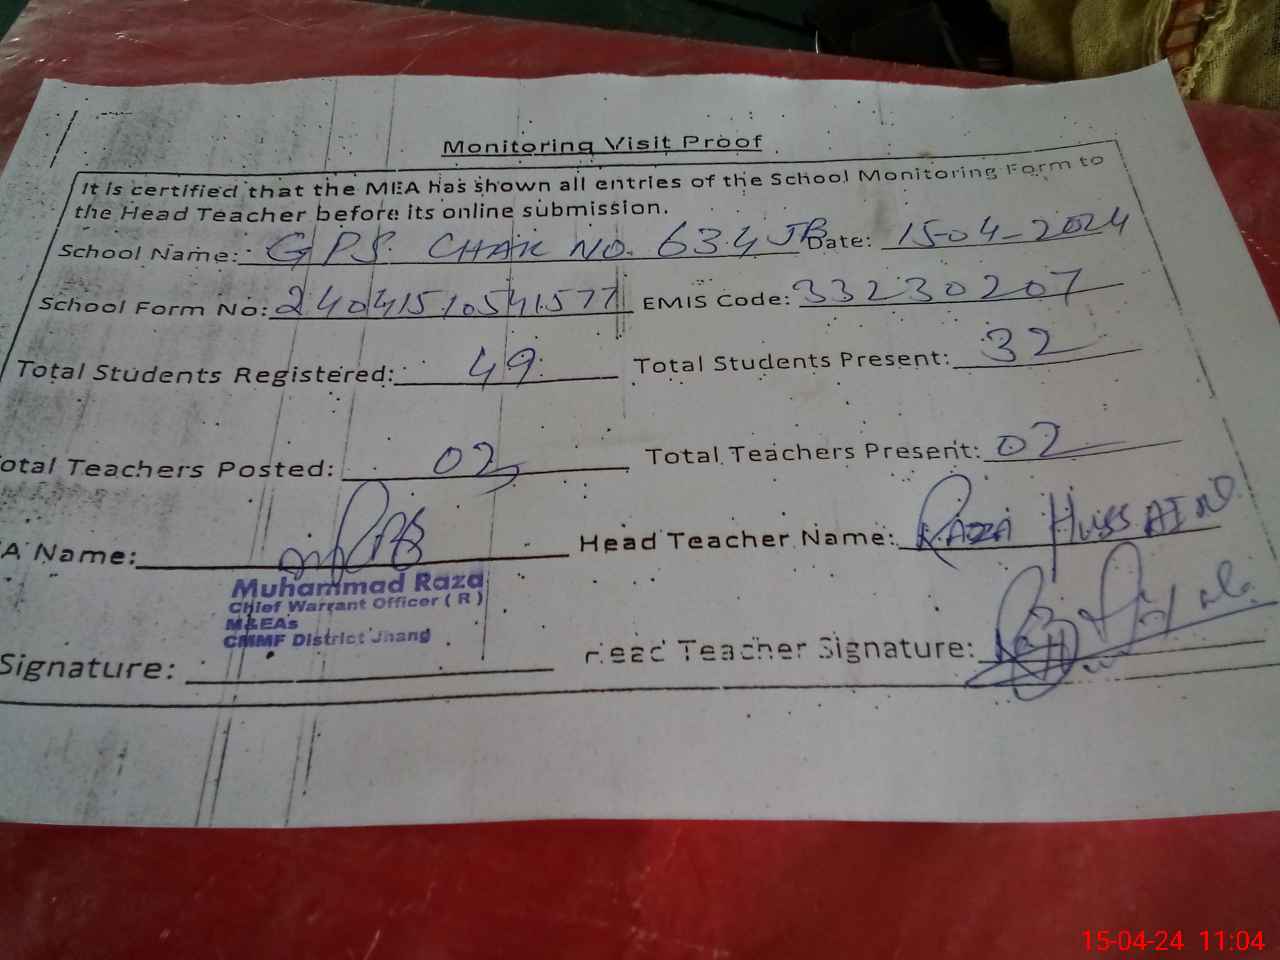 Monitoring Visit Proof
It is certified that the MEA has shown all entries of the School Monitoring Form to
the Head Teacher before its online submission.
School Name: GPS. CHAK NO. 634 JB Date: 15-04-2024
School Form No: 24041510541577 EMIS Code: 33230207
Total Students Registered: 49 Total Students Present: 32
otal Teachers Posted: 02 Total Teachers Present: 02
A Name: Head Teacher Name: RAZZA HUSSAIN
Muhammad Raza
Chief Warrant Officer ( R )
M&EAs
CMMF District Jhang
Signature: Head Teacher Signature:
15-04-24 11:04